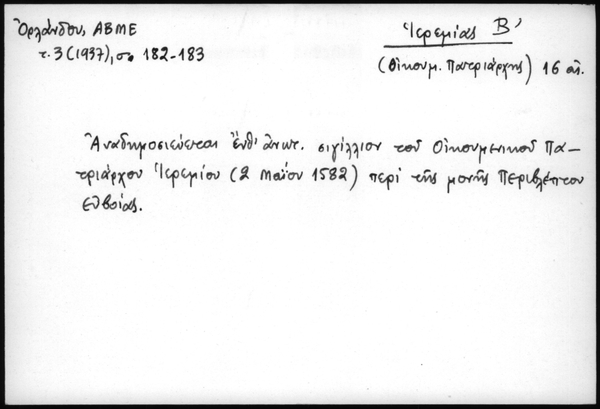 Ὀρλάνδου, ΑΒΜΕ
τ. 3 (1937), σ. 182-183
Ἱερεμίας Β'
(Οἰκουμ. Πατριάρχης) 16 αἰ.
Ἀναδημοσιεύεται ἔνθ' ἀνωτ. σιγίλλιον τοῦ Οἰκουμενικοῦ Πα-
τριάρχου Ἱερεμίου (2 Μαΐου 1582) περὶ τῆς μονῆς Περιβλέπτου
Εὐβοίας.